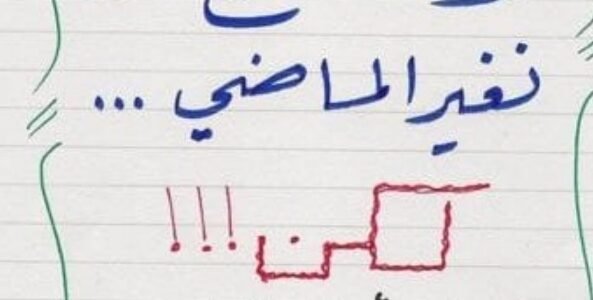 نغير الماضي ...
لكن !!!